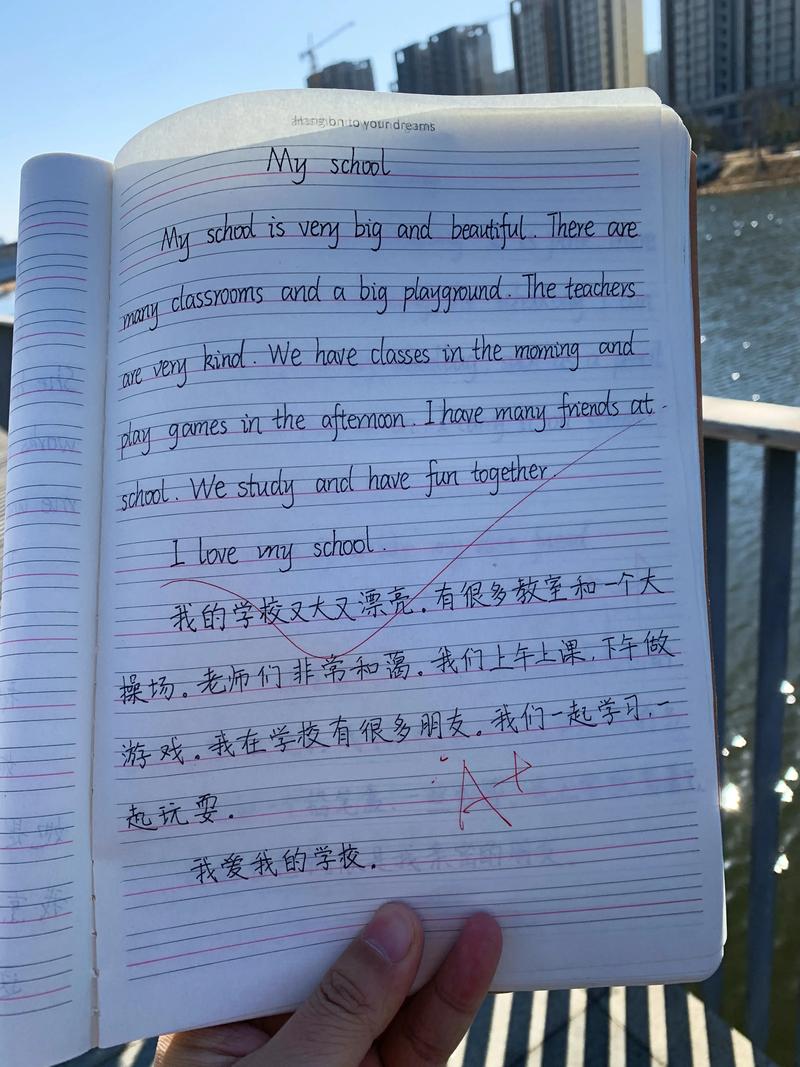 Hang on to your dreams
My school
My school is very big and beautiful. There are
many classrooms and a big playground. The teachers
are very kind. We have classes in the morning and
play games in the afternoon. I have many friends at
school. We study and have fun together
I love my school.
我的学校又大又漂亮。有很多教室和一个大
操场。老师们非常和蔼。我们上午上课,下午做
游戏。我在学校有很多朋友。我们一起学习,一
起玩耍。
A+
我爱我的学校。